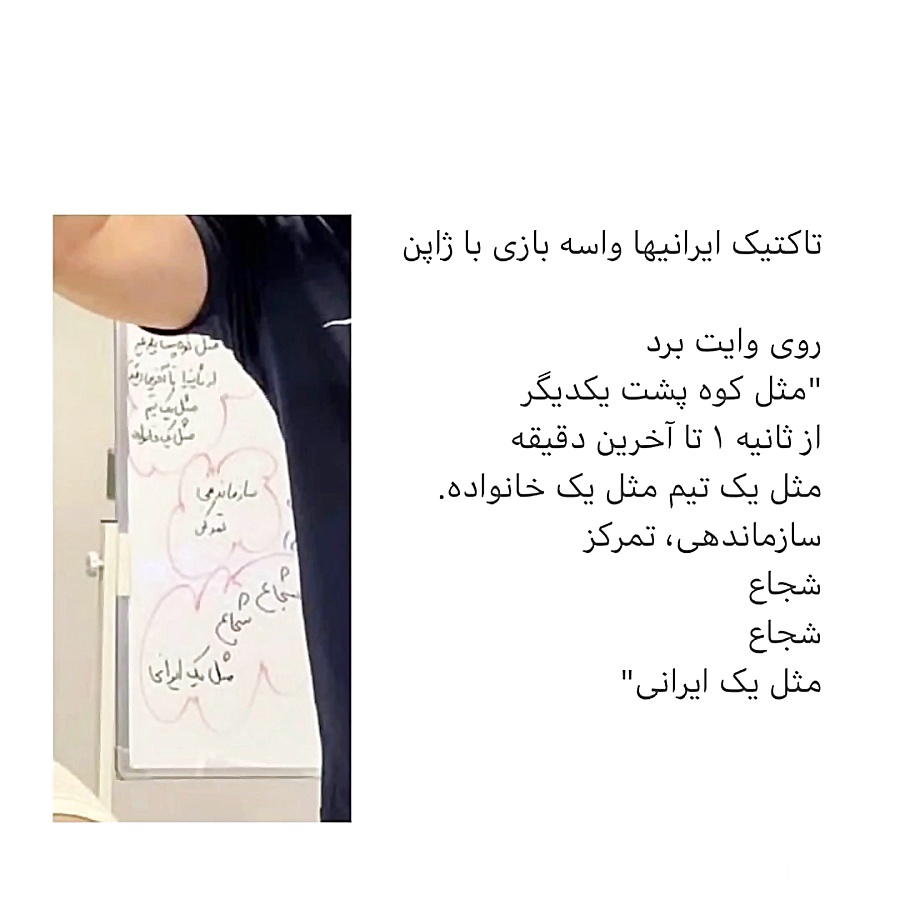 تاکتیک ایرانیها واسه بازی با ژاپن
روی وایت برد
"مثل کوه پشت یکدیگر
از ثانیه ۱ تا آخرین دقیقه
مثل یک تیم مثل یک خانواده.
سازماندهی، تمرکز
شجاع
شجاع
مثل یک ایرانی"
مثل کوه پشت
از ثانیه ۱ تا آخرین
مثل یک تیم
مثل یک خانواده
سازماندهی
تمرکز
شجاع
شجاع
مثل یک ایرانی